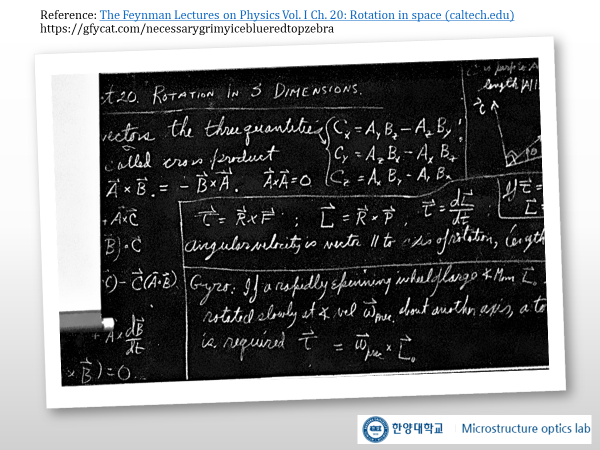 Reference: The Feynman Lectures on Physics Vol. I Ch. 20: Rotation in space (caltech.edu)
https://gfycat.com/necessarygrimyiceblueredtopzebra
t 20. ROTATION IN 3 DIMENSIONS.
length |A|
vectors the three quantities
Cx = Ay Bz − Az By
called cross product
Cy = Az Bx − Ax Bz
Cz = Ax By − Ay Bx
A⃗ × B⃗ = − B⃗ × A⃗. A⃗ × A⃗ = 0
+ A⃗ × C⃗
τ⃗ = R⃗ × F⃗ ; L⃗ = R⃗ × P⃗ , τ⃗ = dL⃗/dt
If τ⃗ =
L⃗ =
B⃗) · C⃗
angular velocity is vector ∥ to axis of rotation, length
C⃗) − C⃗(A⃗·B⃗)
Gyro: If a rapidly spinning wheel of large ∡ Mom L⃗₀
rotated slowly at ∡ vel ω⃗prec. about another axis, a to
+ A⃗ × dB⃗/dt
is required τ⃗ = ω⃗prec × L⃗₀
× B⃗) = 0.
한양대학교 Microstructure optics lab